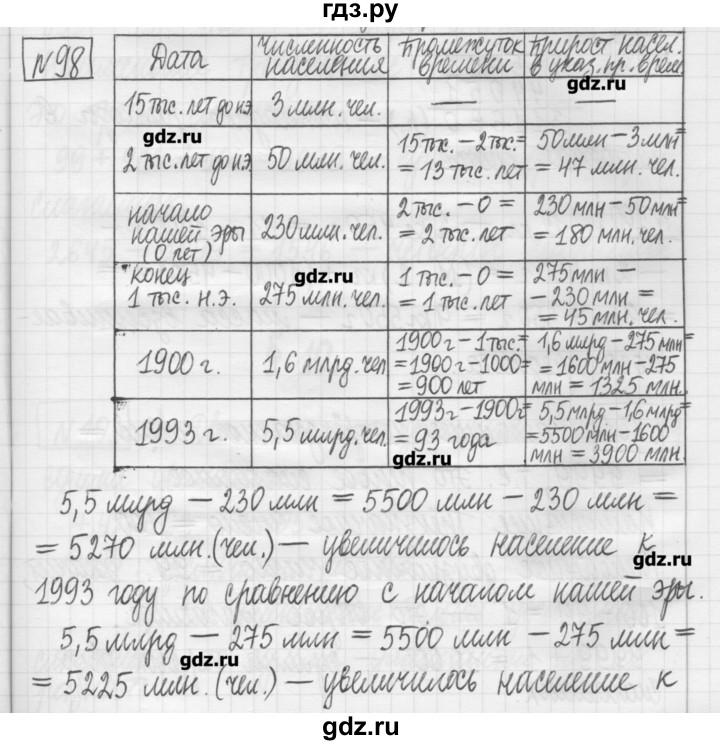 гдз.ру
№98
Дата | Численность населения | Промежуток времени | Прирост насел. в указ. пр. врем.
gdz.ru
15 тыс. лет до нэ | 3 млн. чел. | — | —
gdz.ru
2 тыс. лет до нэ | 50 млн. чел. | 15 тыс. – 2 тыс. = = 13 тыс. лет | 50 млн – 3 млн = = 47 млн. чел.
начало нашей эры (0 лет) | 230 млн. чел. | 2 тыс. – 0 = = 2 тыс. лет | 230 млн – 50 млн = = 180 млн. чел.
gdz.ru
конец 1 тыс. н.э. | 275 млн. чел. | 1 тыс. – 0 = = 1 тыс. лет | 275 млн – – 230 млн = = 45 млн. чел.
1900 г. | 1,6 млрд. чел | 1900 г – 1 тыс. = = 1900 г – 1000 = = 900 лет | 1,6 млрд – 275 млн = = 1600 млн – 275 млн = 1325 млн.
1993 г. | 5,5 млрд. чел. | 1993 г – 1900 г = = 93 года | 5,5 млрд – 1,6 млрд = = 5500 млн – 1600 млн = 3900 млн.
gdz.ru
5,5 млрд – 230 млн = 5500 млн – 230 млн =
= 5270 млн. (чел.) – увеличилось население к
gdz.ru
1993 году по сравнению с началом нашей эры.
5,5 млрд – 275 млн = 5500 млн – 275 млн =
gdz.ru
= 5225 млн. (чел.) – увеличилось население к
gdz.ru